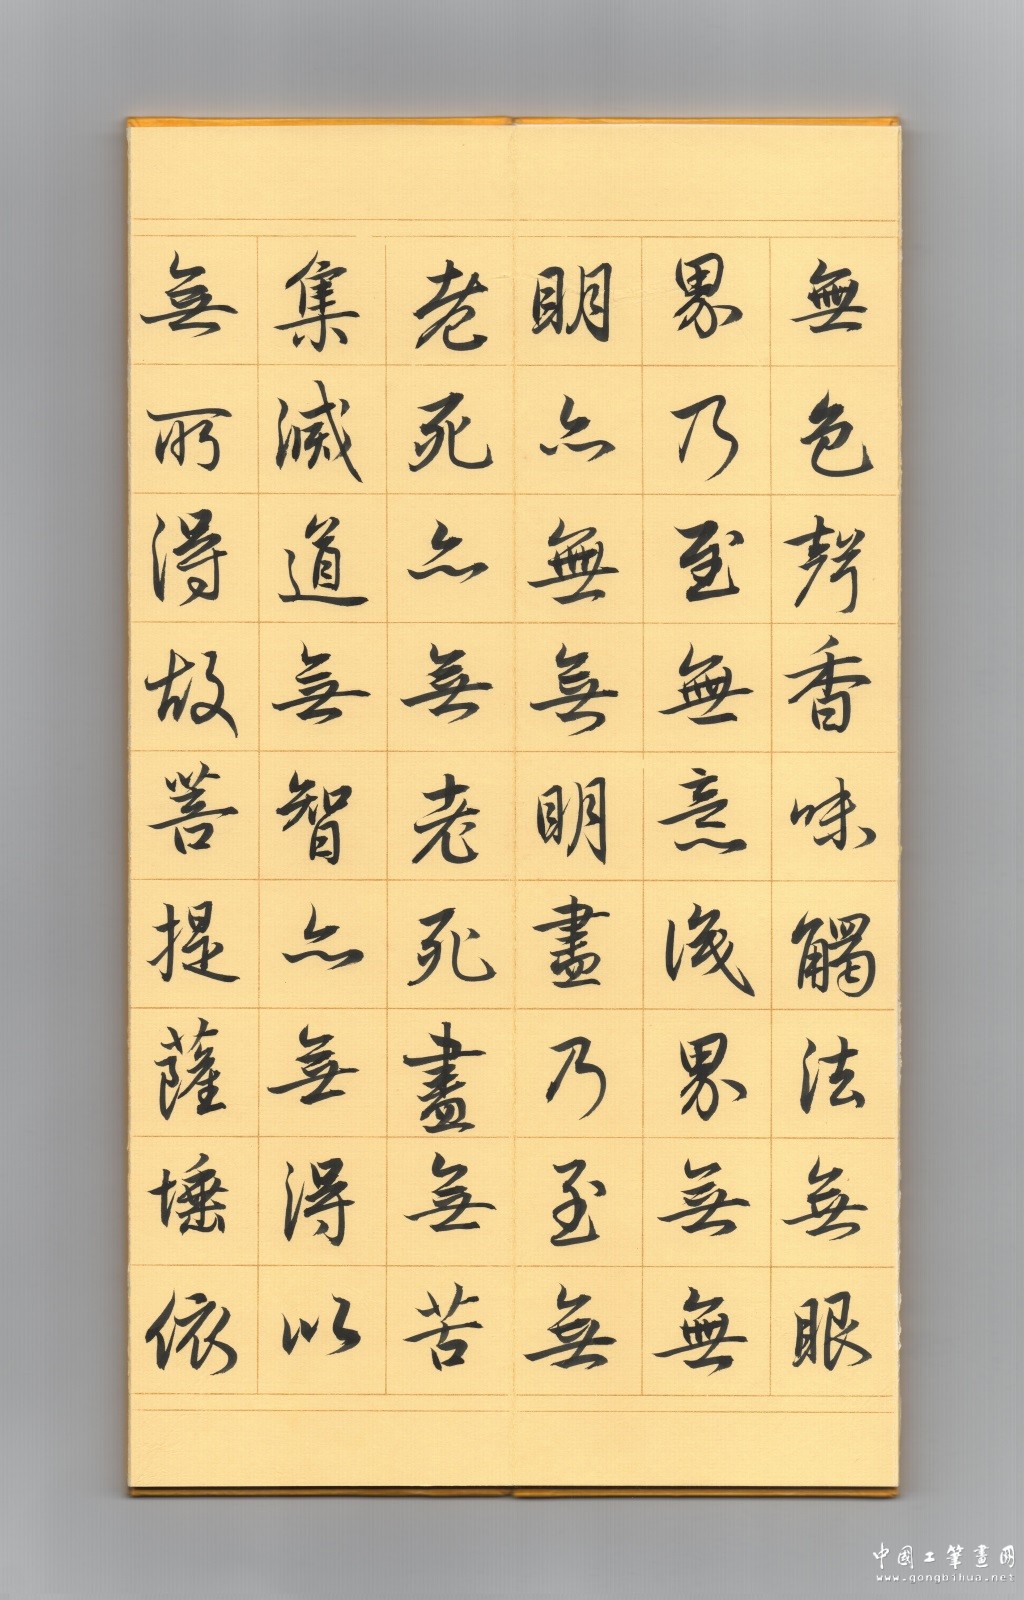 無色聲香味觸法無眼
界乃至無意識界無無
明亦無無明盡乃至無
老死亦無老死盡無苦
集滅道無智亦無得以
無所得故菩提薩埵依
中國工筆畫网
www.gongbihua.net